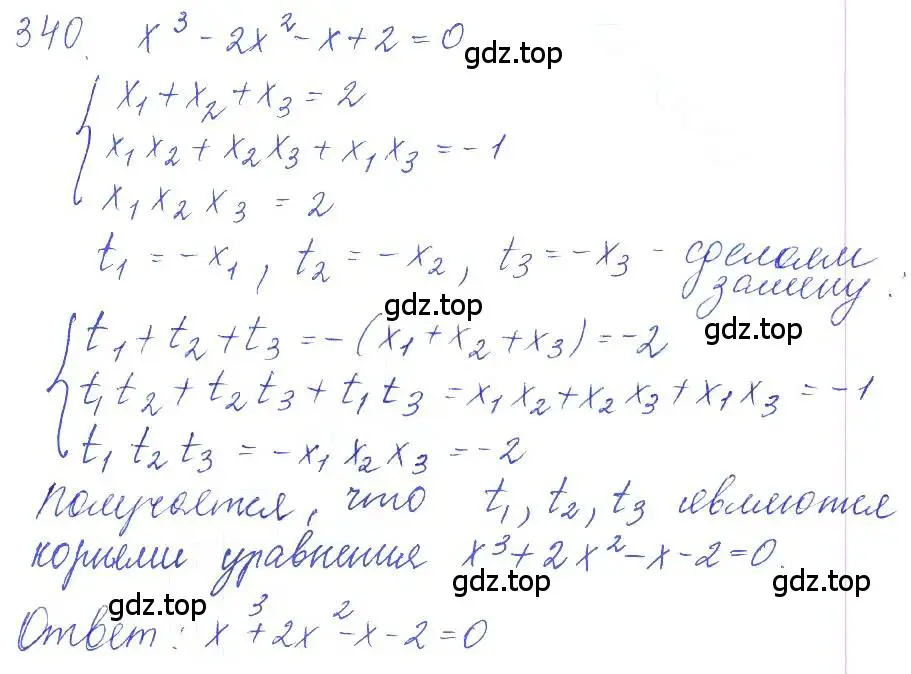 340. x³ - 2x² - x + 2 = 0
gdz.top
x₁ + x₂ + x₃ = 2
x₁x₂ + x₂x₃ + x₁x₃ = -1
x₁x₂x₃ = 2
t₁ = -x₁, t₂ = -x₂, t₃ = -x₃ - сделаем
замену.
gdz.top gdz.top
t₁ + t₂ + t₃ = -(x₁ + x₂ + x₃) = -2
t₁t₂ + t₂t₃ + t₁t₃ = x₁x₂ + x₂x₃ + x₁x₃ = -1
t₁t₂t₃ = -x₁x₂x₃ = -2
Получается, что t₁, t₂, t₃ являются
корнями уравнения x³ + 2x² - x - 2 = 0.
gdz.top gdz.top gdz.top
Ответ: x³ + 2x² - x - 2 = 0